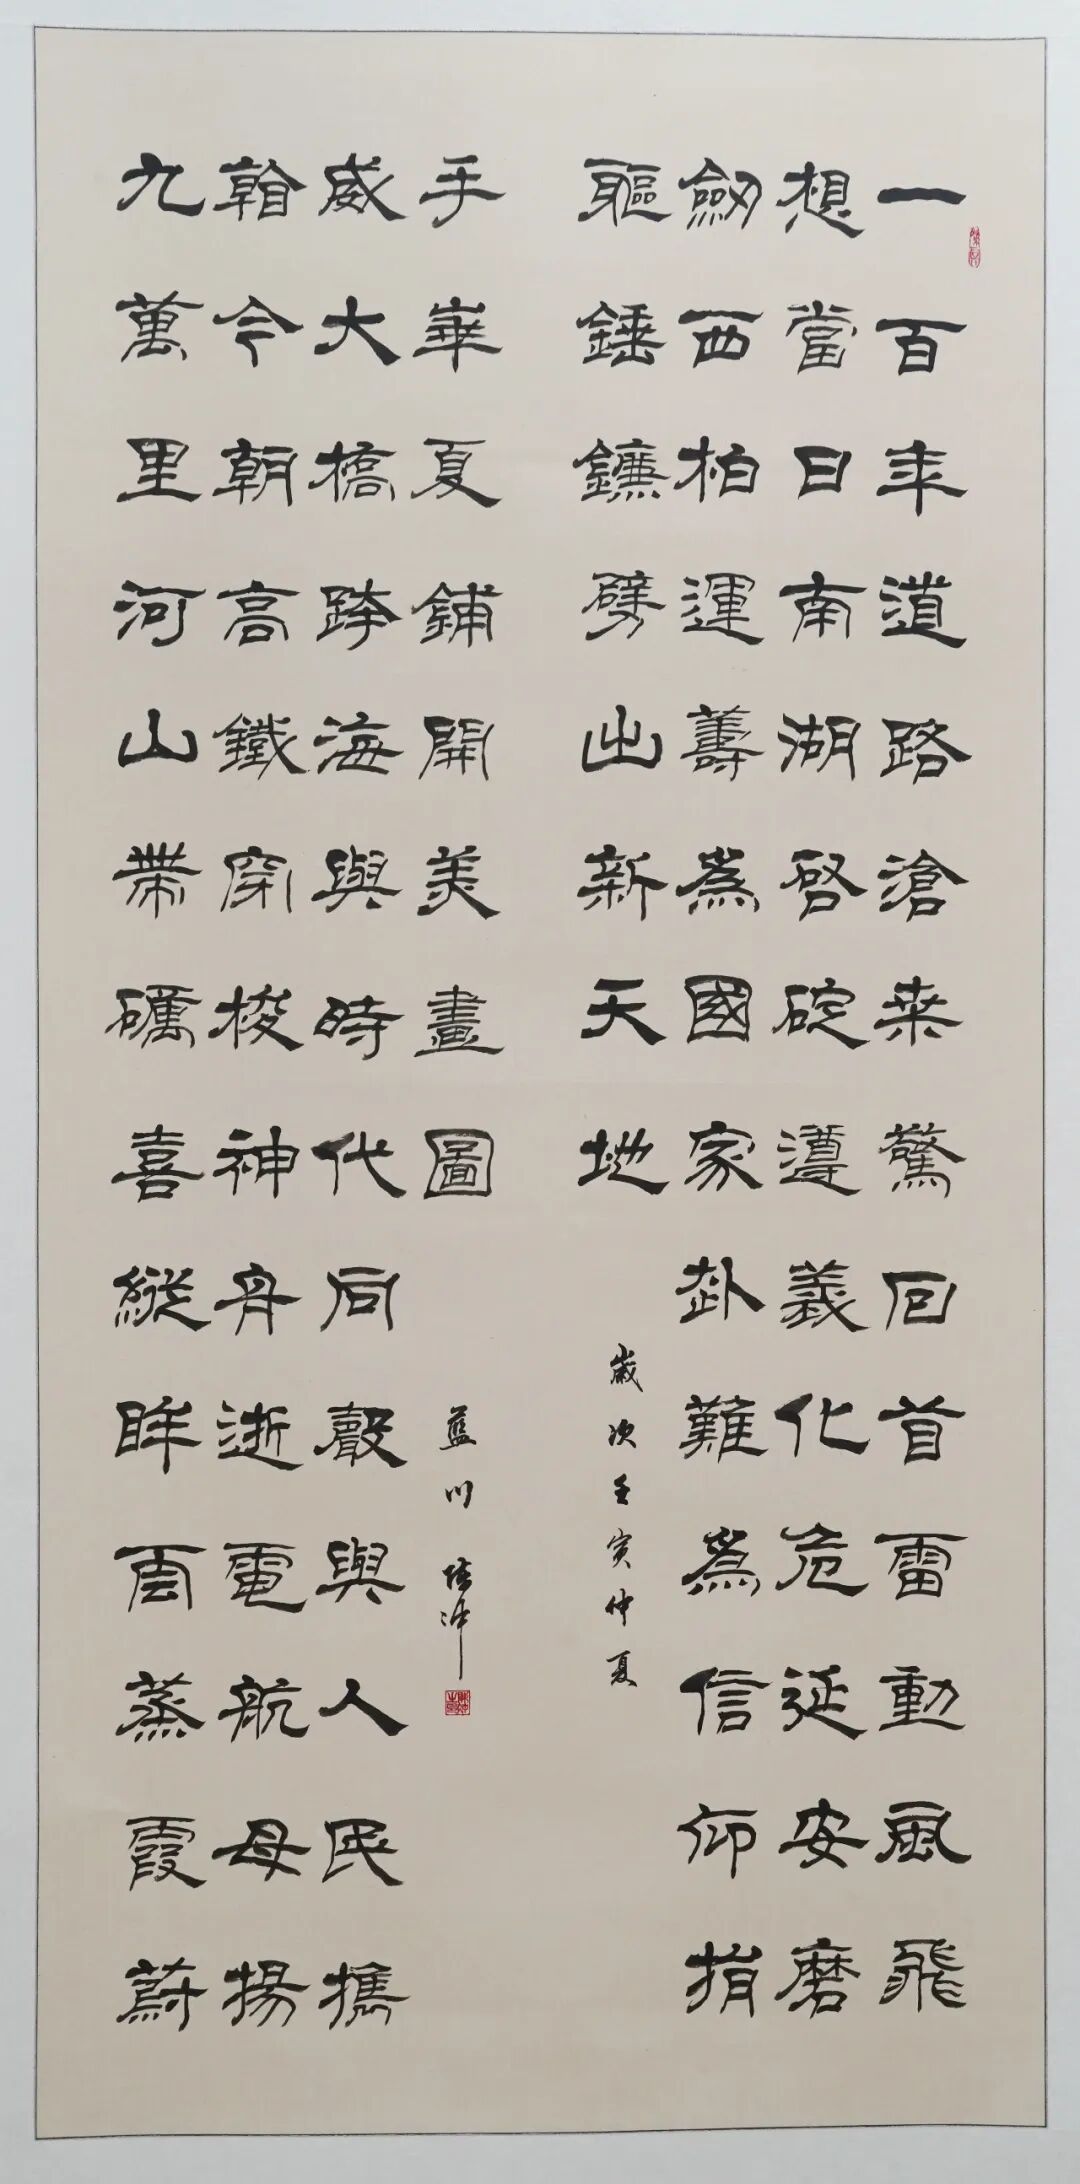 一百年道路滄桒驚回首雷動風飛
想當日南湖啓碇遵義化危延安磨
劎西柏運籌爲國家赴難爲信仰捐
軀錘鐮劈出新天地
歲次壬寅仲夏
九萬里河山帶礪喜縱眸雲蒸霞蔚
看今朝高鐵穿梭神舟逝電航母揚
威大橋跨海與時代同聲與人民攜
手華夏鋪開美畫圖
藍川